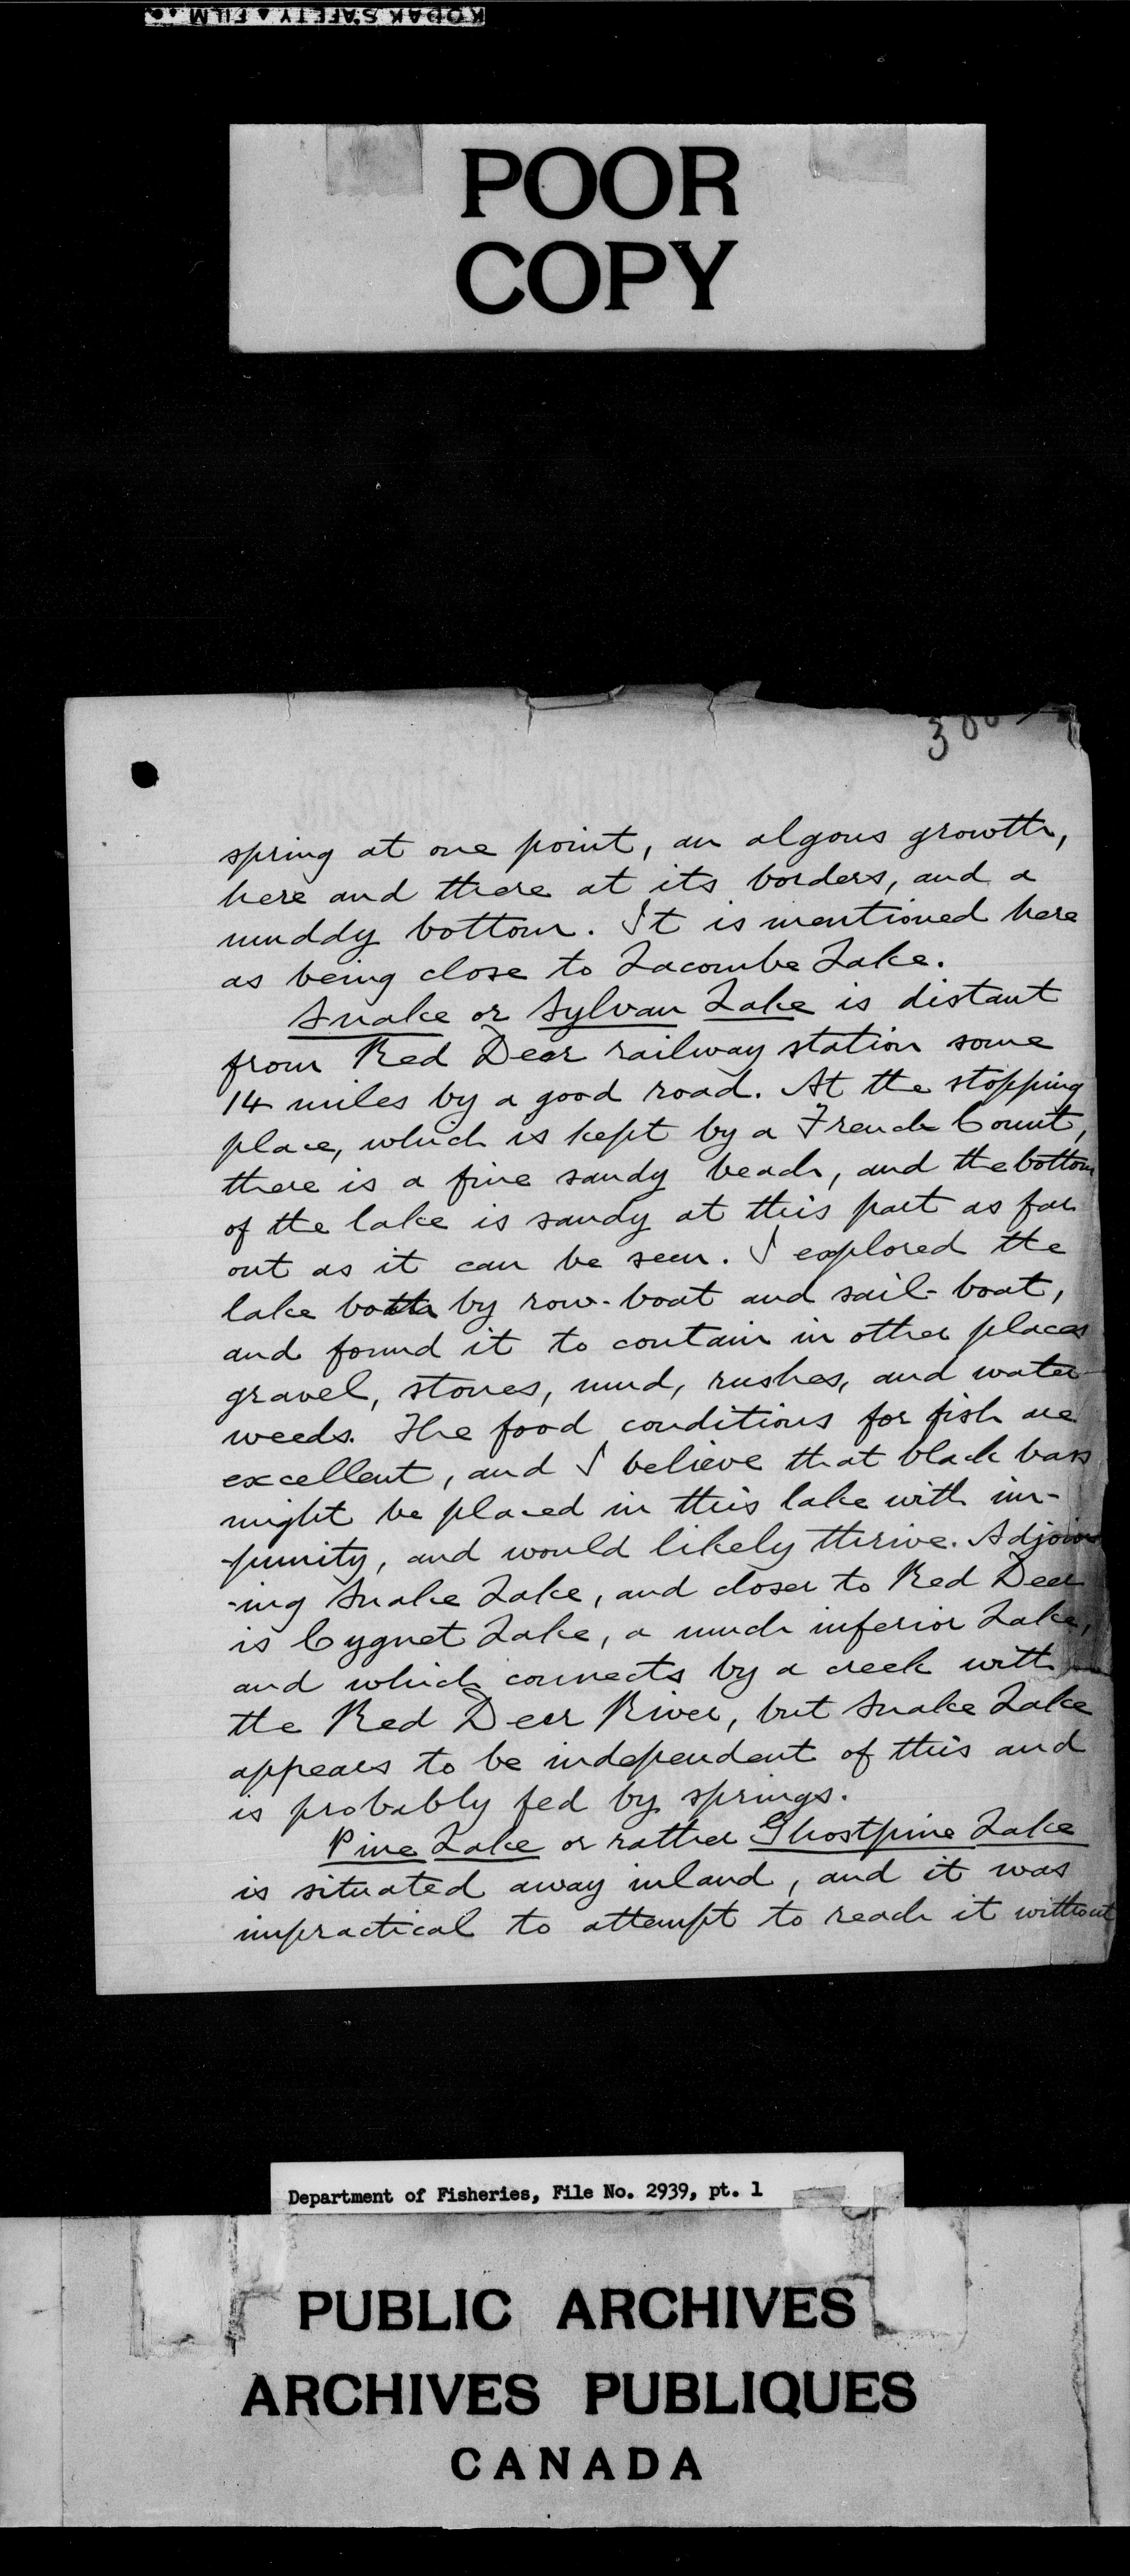 KODAK SAFETY FILM
POOR
COPY
spring at one point, an algous growth,
here and there at its borders, and a
muddy bottom. It is mentioned here
as being close to Lacombe Lake.
Snake or Sylvan Lake is distant
from Red Deer railway station some
14 miles by a good road. At the stopping
place, which is kept by a French Count,
there is a fine sandy beach, and the bottom
of the lake is sandy at this part as far
out as it can be seen. I explored the
lake both by row-boat and sail-boat,
and found it to contain in other places
gravel, stones, mud, rushes, and water
weeds. The food conditions for fish are
excellent, and I believe that black bass
might be placed in this lake with im-
-punity, and would likely thrive. Adjoin
-ing Snake Lake, and closer to Red Deer
is Cygnet Lake, a much inferior Lake,
and which connects by a creek with
the Red Deer River, but Snake Lake
appears to be independent of this and
is probably fed by springs.
Pine Lake or rather Ghostpine Lake
is situated away inland, and it was
impractical to attempt to reach it without
Department of Fisheries, File No. 2939, pt. 1
PUBLIC ARCHIVES
ARCHIVES PUBLIQUES
CANADA